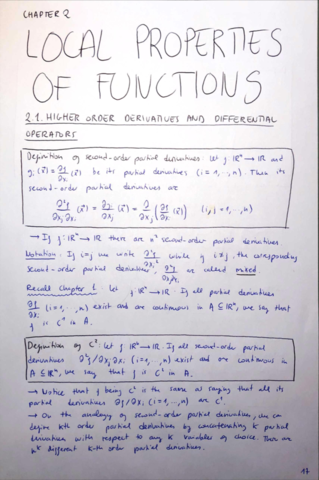 CHAPTER 2
LOCAL PROPERTIES
OF FUNCTIONS
2.1. HIGHER ORDER DERIVATIVES AND DIFFERENTIAL
OPERATORS
Definition of second-order partial derivatives: Let f: ℝⁿ → ℝ and
gᵢ(x̄) = ∂f/∂xᵢ (x̄) be its partial derivatives (i = 1, ..., n). Then its
second-order partial derivatives are
∂²f/∂xⱼ∂xᵢ (x̄) = ∂gᵢ/∂xⱼ (x̄) = ∂/∂xⱼ (∂f/∂xᵢ (x̄)) (i,j = 1, ..., n)
→ If f: ℝⁿ → ℝ there are n² second-order partial derivatives.
Notation: If i=j we write ∂²f/∂xᵢ² while if i≠j, the corresponding
second-order partial derivatives, ∂²f/∂xⱼ∂xᵢ are called mixed
Recall Chapter 1. Let f: ℝⁿ → ℝ. If all partial derivatives
∂f/∂xᵢ (i=1, ..., n) exist and are continuous in A ⊆ ℝⁿ, we say that
f is C¹ in A.
Definition of C²: Let f: ℝⁿ → ℝ. If all second-order partial
derivatives ∂²f/∂xⱼ∂xᵢ (i=1, ..., n) exist and are continuous in
A ⊆ ℝⁿ, we say that f is C² in A.
→ Notice that f being C² is the same as saying that all its
partial derivatives ∂f/∂xᵢ (i=1, ..., n) are C¹.
→ On the analogy of second-order partial derivatives, we can
define kth order partial derivatives by concatenating k partial
derivatives with respect to any k variables of choice. There are
nᵏ different k-th order partial derivatives.
17